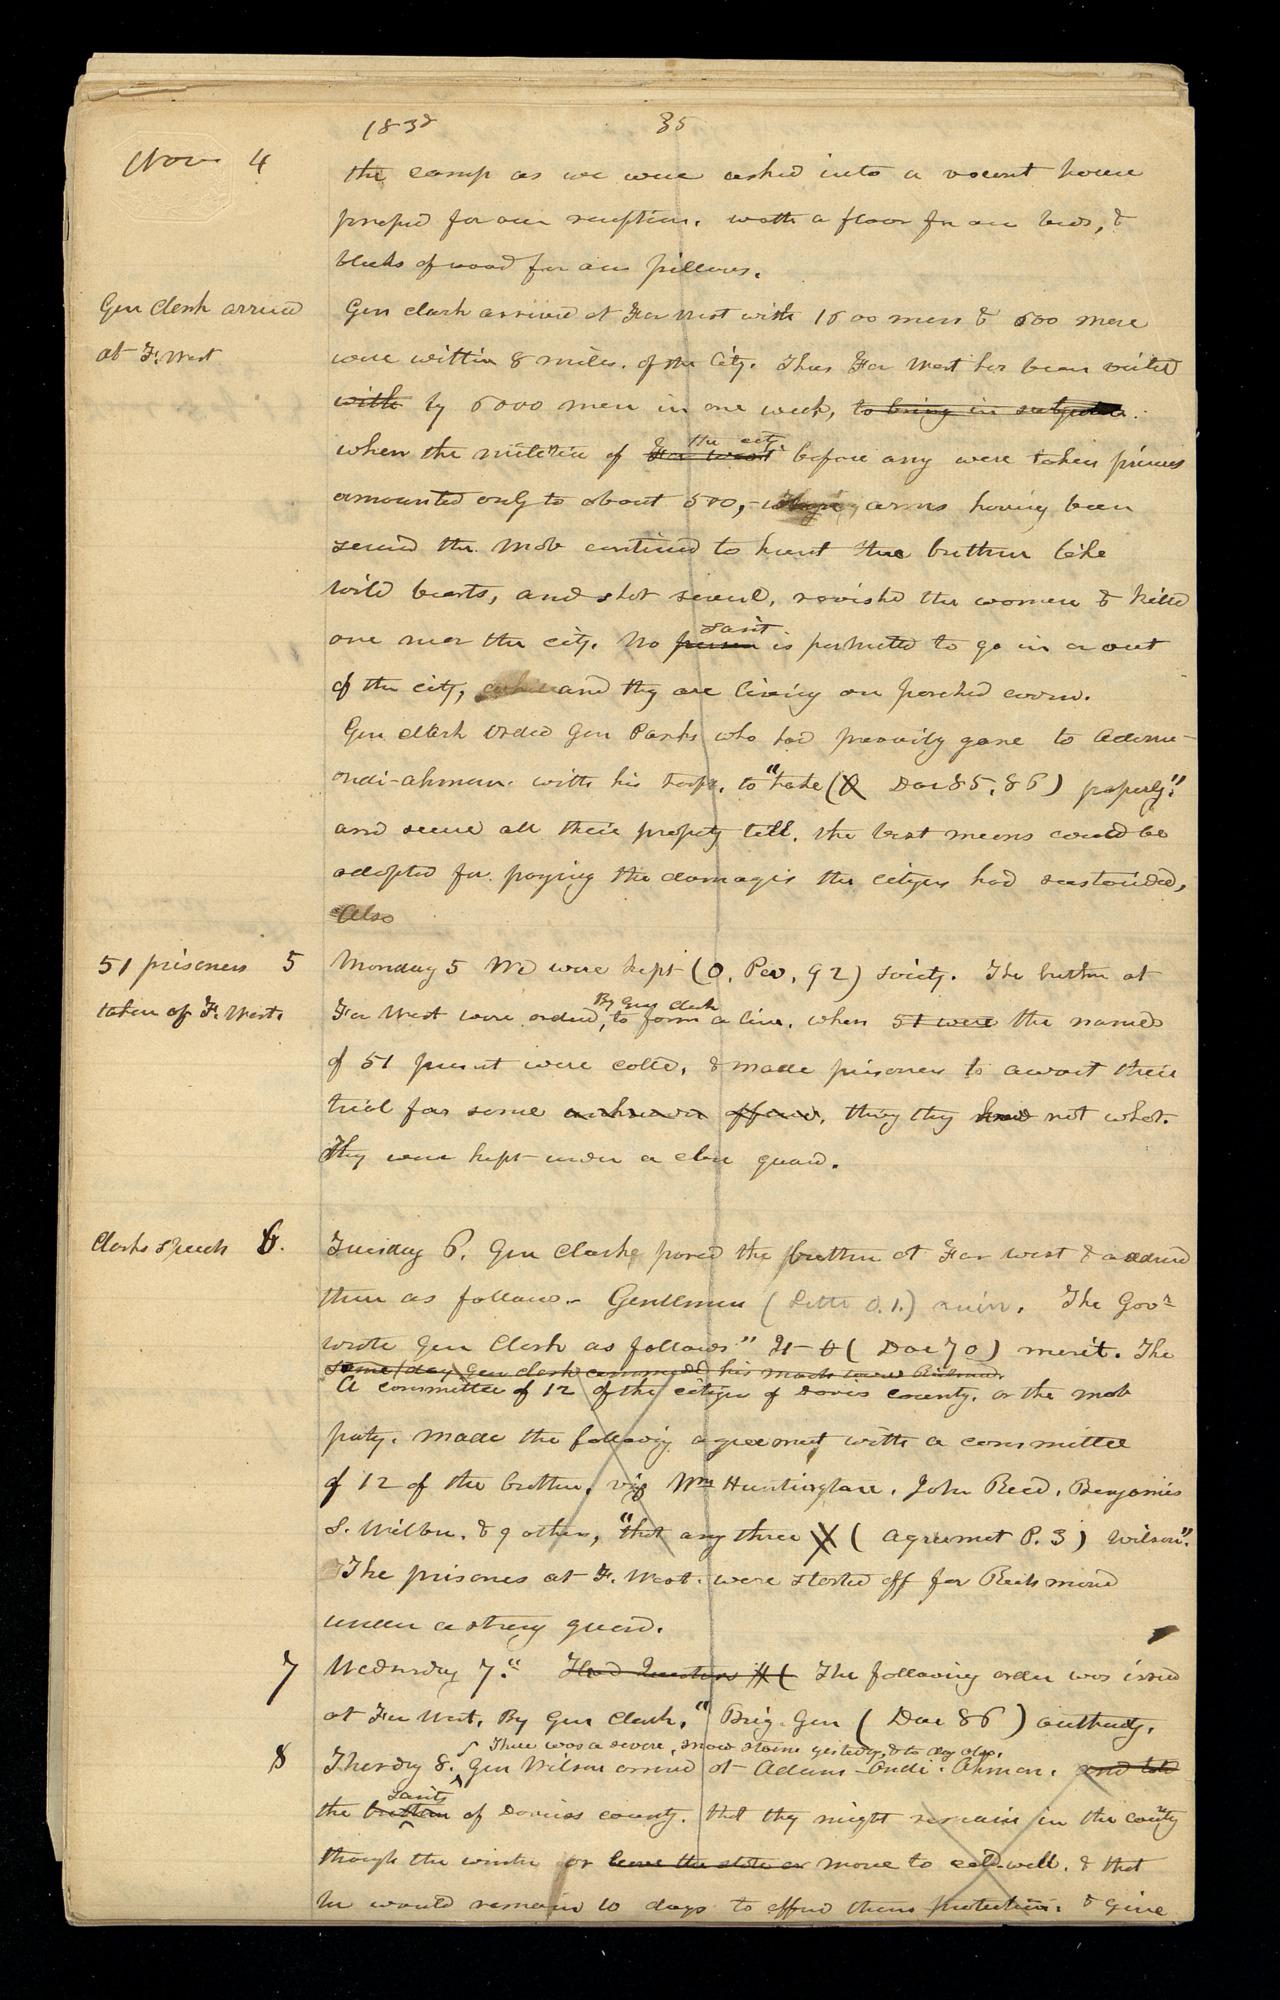 1838 35
Nov 4
the camp as we were asked into a vacant house
preped for our reception. with a floor for our beds, &
blocks of wood for our pillows.
Gen Clark arrived
at F. West
Gen Clark arrived at Far West with 1600 men & 600 more
were within 8 miles. of the City. Thus Far West has been visited
with by 6000 men in one week,
when the militia of Far West the city before any were taken prisners
amounted only to about 500,- arms having been
secured the mob continued to hunt the brethren like
wild beasts, and shot several, ravished the women & killed
one near the city. No person saint is permitted to go in or out
of the city, and they are living on parched corn.
Gen Clark ordered Gen Parks who had previously gone to Adam-
ondi-ahman. with his troops. to "take ( Doc 85, 86) properly"
and secure all their property till. the best means could be
adopted for paying the damages the citizens had sustained,
Also
51 prisoners 5
taken at F. West
Monday 5 We were kept (O. Per, 92) society. The brethren at
Far West were ordered, By Gen Clark to form a line. when 51 were the names
of 51 present were called, & made prisoners to await their
trial for some unknown offence, they not what.
They were kept under a close guard.
Clarks speech 6.
Tuesday 6. Gen Clark pared the brethren at Far West & addressed
them as follows.- Gentlemen ( Letter ) ruin. The Govr
wrote Gen Clark as follows" It ( Doc 70) merit. The
same day Gen Clark commenced his march towards Richmond.
A committee of 12 of the citizens of Davis county. or the mob
party. made the following agreement with a committee
of 12 of the brethren, viz Wm Huntington. John Reed. Benjamin
S. Wilber. & 9 others, "that any three ( Agreemet P. 3) Wilson".
The prisones at F. West. were started off for Richmond
under a strong guard.
7 Wednesday 7." Head Quarters # ( The following order was issued
at Far West. By Gen Clark. " Brig-Gen ( Doc 86 ) authority.
There was a severe, snow storm yesterday, & to day also.
8 Thursday 8. Gen Wilson arrived at Adam-Ondi-Ahman. and told
the brethren saints of Daviess county. that they might remain in the county
though the winter or leave the state or move to caldwell. & that
he would remain 10 days to afford them protection. & give